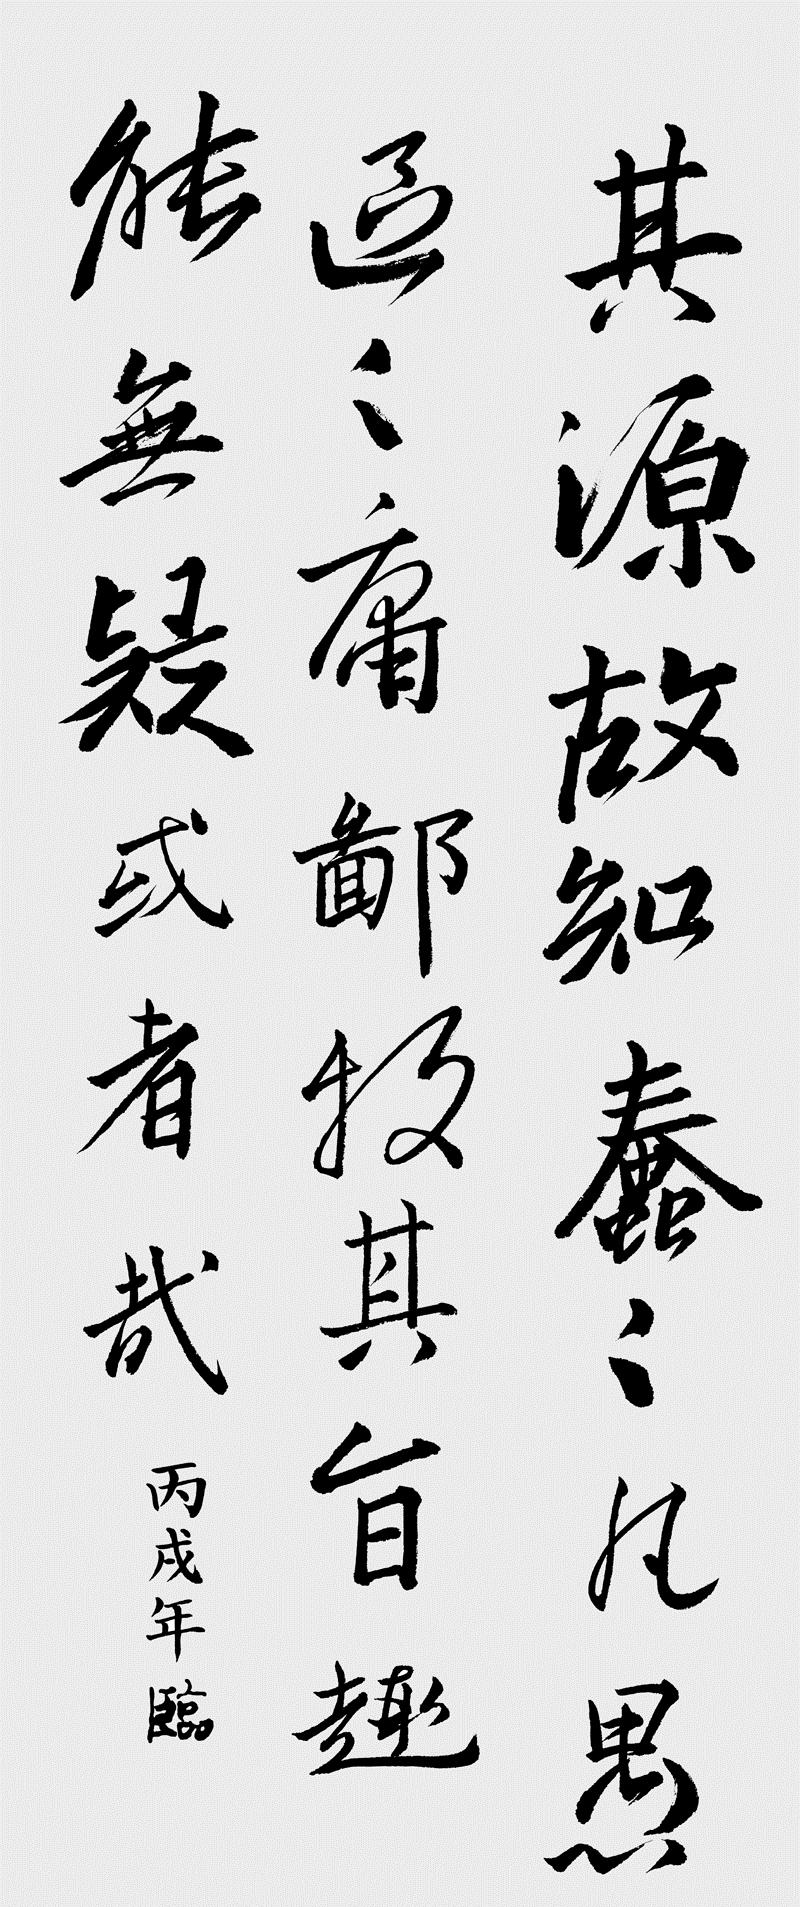 其源故知蠢〻凡愚
區〻庸鄙投其旨趣
能無疑或者哉
丙戌年臨